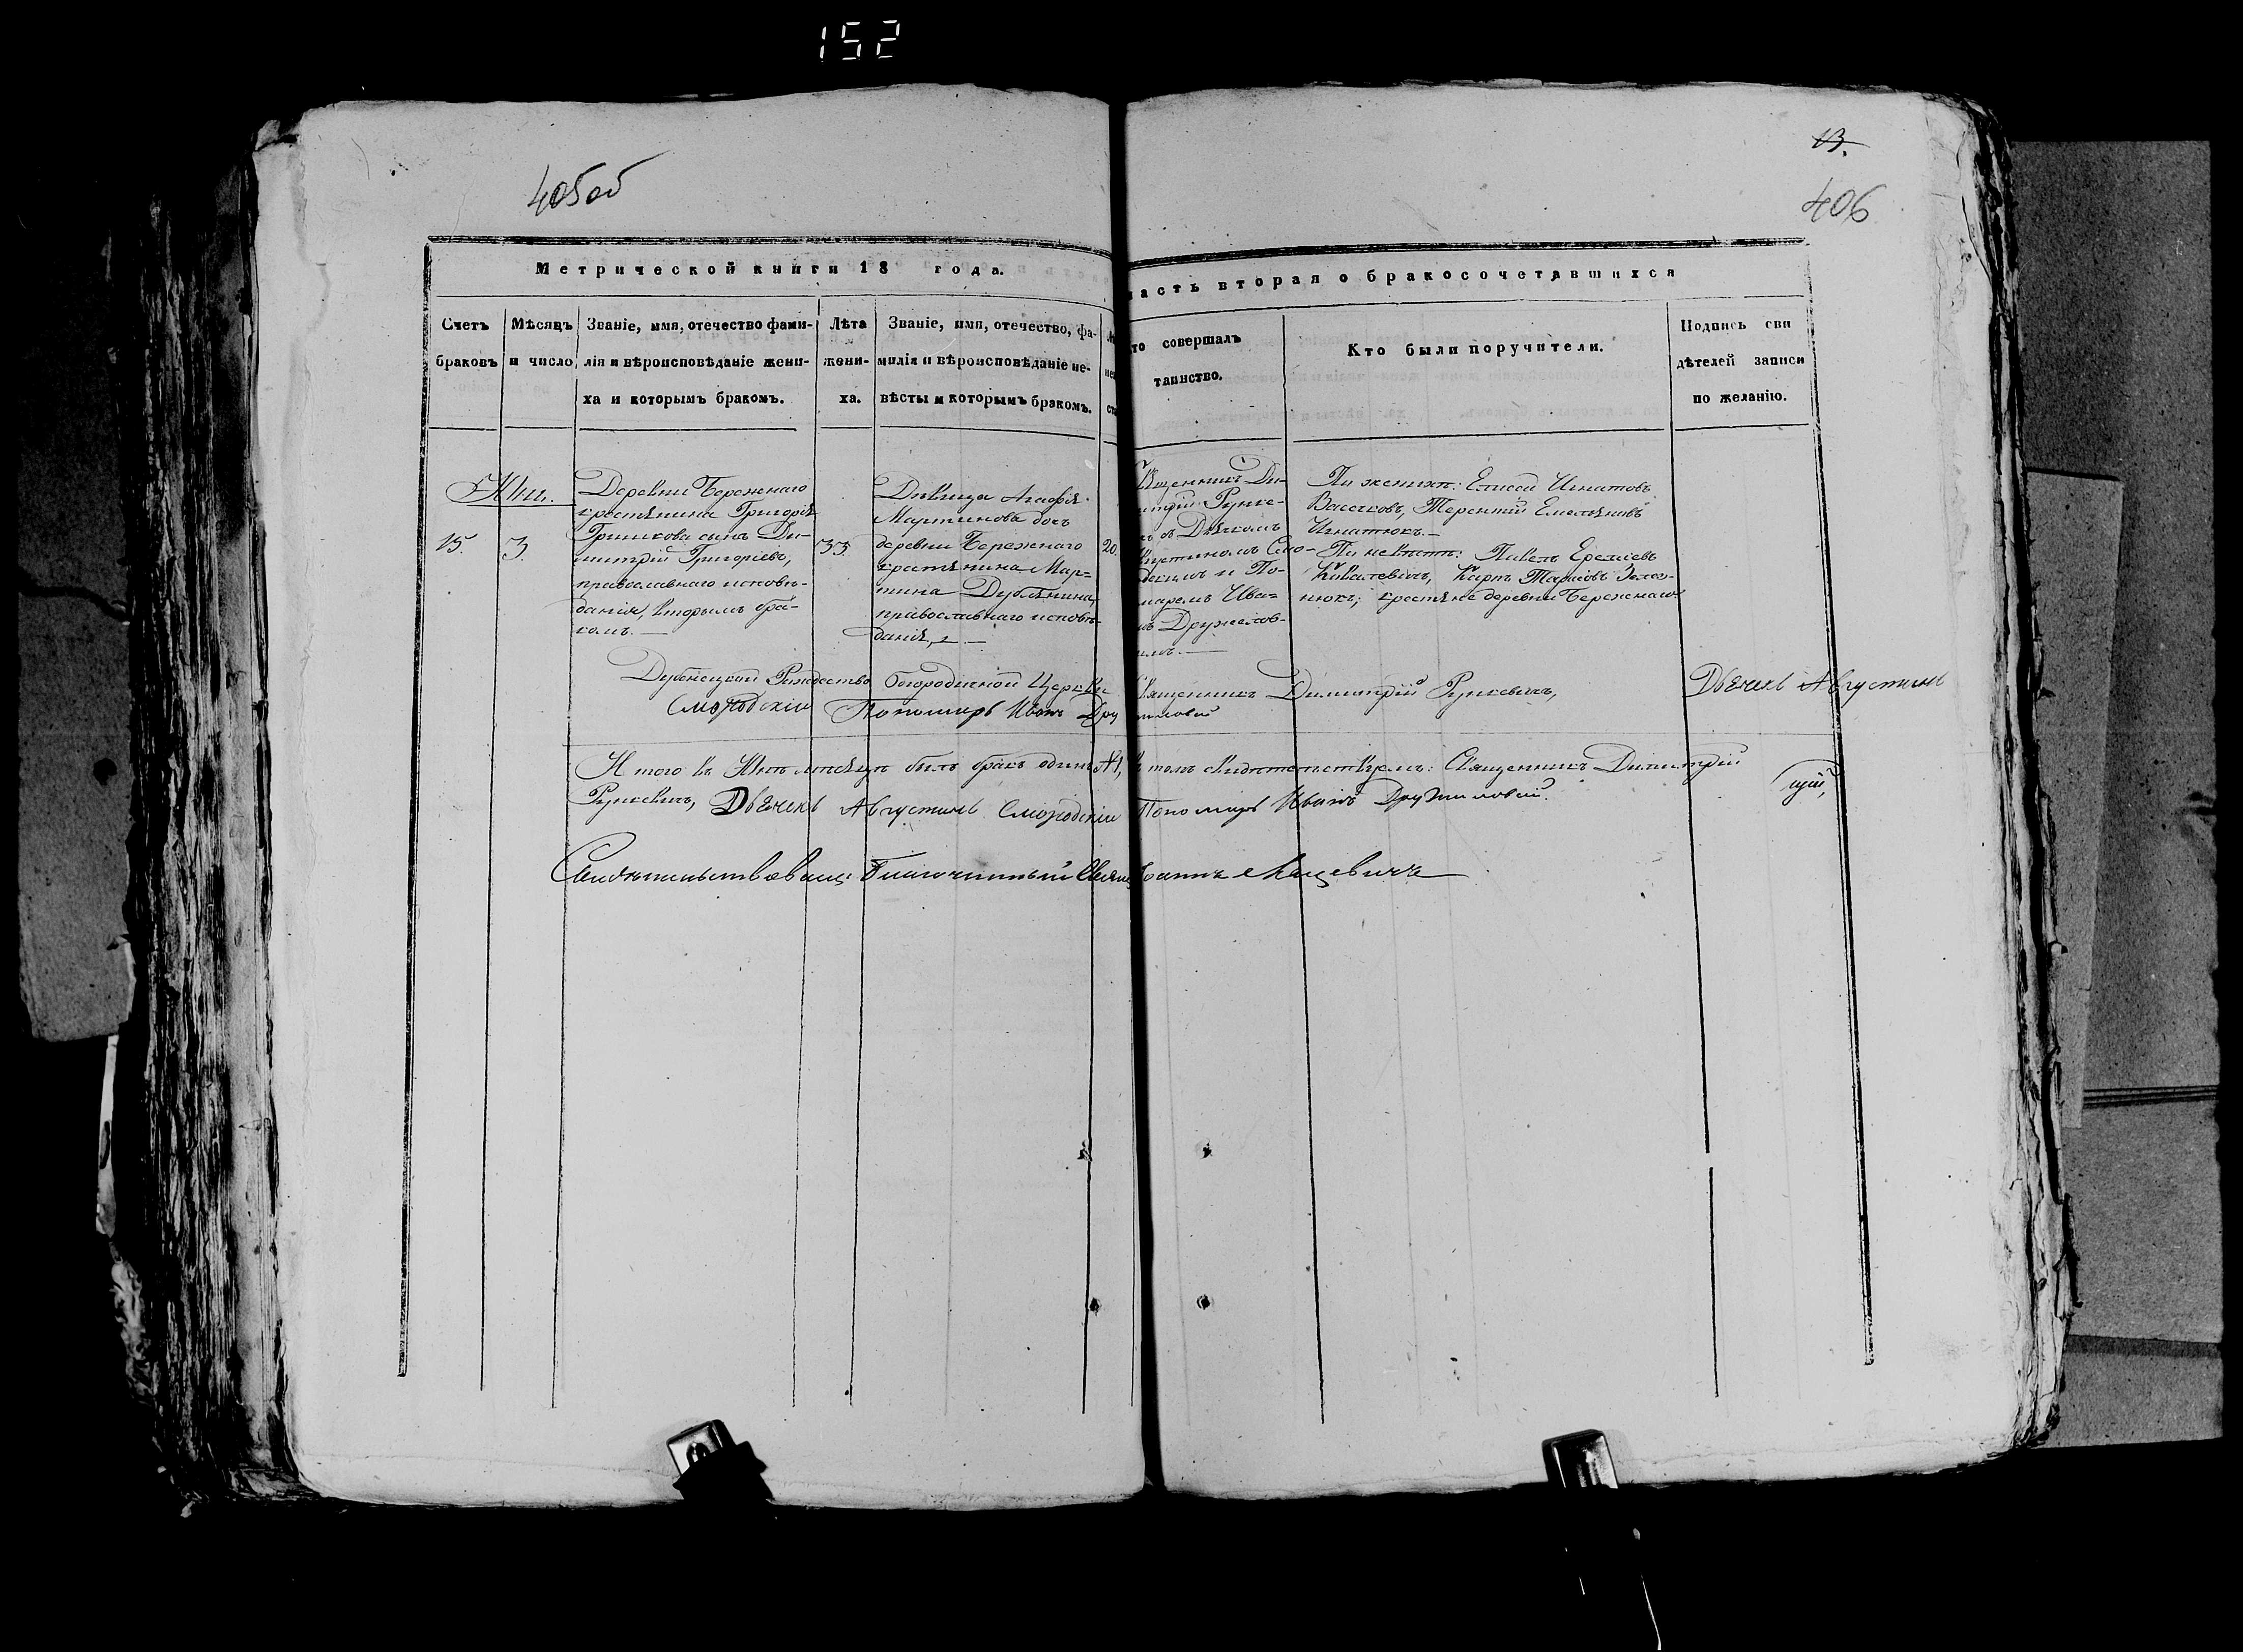 152
405об
13.
406
Метрической книги 18 года.
часть вторая о бракосочетавшихся
Счетъ браковъ
Мѣсяцъ и число
Званіе, имя, отечество фами-
лія и вѣроисповѣданіе жени-
ха и которымъ бракомъ.
Лѣта
жени-
ха.
Званіе, имя, отечество, фа-
милія и вѣроисповѣданіе не-
вѣсты и которымъ бракомъ.
то совершалъ
таинство.
Кто были поручители.
Подпись сви
дѣтелей записи
по желанію.
15.
3.
Деревни Бережнаго
крестьянина Григорія
Гришкова сынъ Ди-
митрій Григоріевъ,
православнаго исповѣ-
данія, вторымъ бра-
комъ.
33.
Дѣвица Агафія
Мартинова дочь
деревни Бережнаго
крестьянина Мар=
тина
православнаго исповѣ-
данія, 1.
20.
щенникъ Ди-
митрій Рунке-
ъ съ Дьякомъ
густиномъ Смо-
и По-
маремъ Ива=
Дружилов-
По женихѣ: Елисей Игнатовъ
Терентій Емельяновъ
Игнатюкъ.
По невѣстѣ: Павелъ Еремѣевъ
Ковалевичъ, Карпъ Тарасовъ
нюкъ; крестьяне деревни Бережнаго
Рождество Богородичной Церкви
Священникъ Димитрій Рункевичъ,
Дьячекъ Августинъ
Смородскій Пономарь Иванъ Дружиловскій
Итого въ Юнѣ мѣсяцѣ былъ бракъ одинъ №1,
въ томъ свидѣтельствуемъ: Священникъ Димитрій
Рункевичъ, Дьячекъ Августинъ Смородскій
Пономарь Иванъ Дружиловскій.
Свидѣтельствовалъ: Благочинный Свящ Іоаннъ Мацевичъ